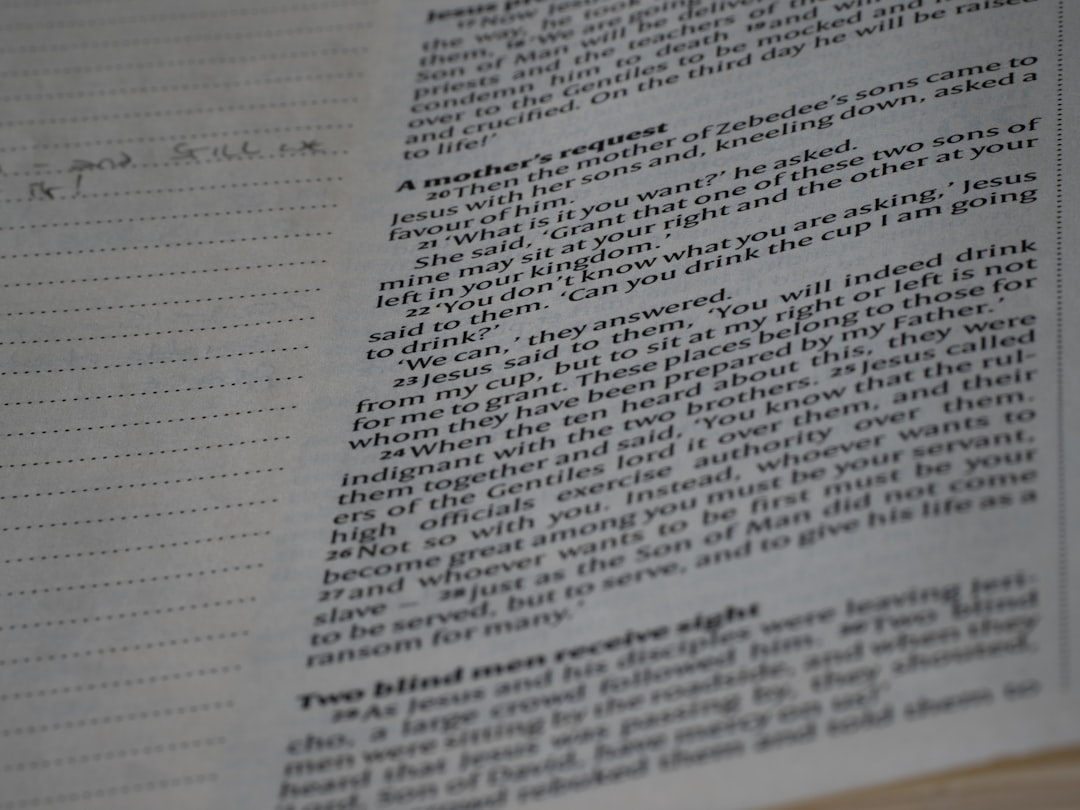 – and STILL
it!
Jesus
17 Now Jesus
the way, he took
them, 18 'We are going
Son of Man will be deliver
priests and the teachers of the
condemn him to death 19 and wi
over to the Gentiles to be mocked and
and crucified. On the third day he will be raised
to life!'
A mother's request
20 Then the mother of Zebedee's sons came to
Jesus with her sons and, kneeling down, asked a
favour of him.
21 'What is it you want?' he asked.
She said, 'Grant that one of these two sons of
mine may sit at your right and the other at your
left in your kingdom.'
22 'You don't know what you are asking,' Jesus
said to them. 'Can you drink the cup I am going
to drink?'
'We can,' they answered.
23 Jesus said to them, 'You will indeed drink
from my cup, but to sit at my right or left is not
for me to grant. These places belong to those for
whom they have been prepared by my Father.'
24 When the ten heard about this, they were
indignant with the two brothers. 25 Jesus called
them together and said, 'You know that the rul-
ers of the Gentiles lord it over them, and their
high officials exercise authority over them.
26 Not so with you. Instead, whoever wants to
become great among you must be your servant,
27 and whoever wants to be first must be your
slave – 28 just as the Son of Man did not come
to be served, but to serve, and to give his life as a
ransom for many.'
Two blind men receive sight
29 As Jesus and his disciples were leaving Jeri-
cho, a large crowd followed him. 30 Two blind
men were sitting by the roadside, and when they
heard that Jesus was passing by, they shouted,
'Lord, Son of David, have mercy on us!'
rebuked them and told them to